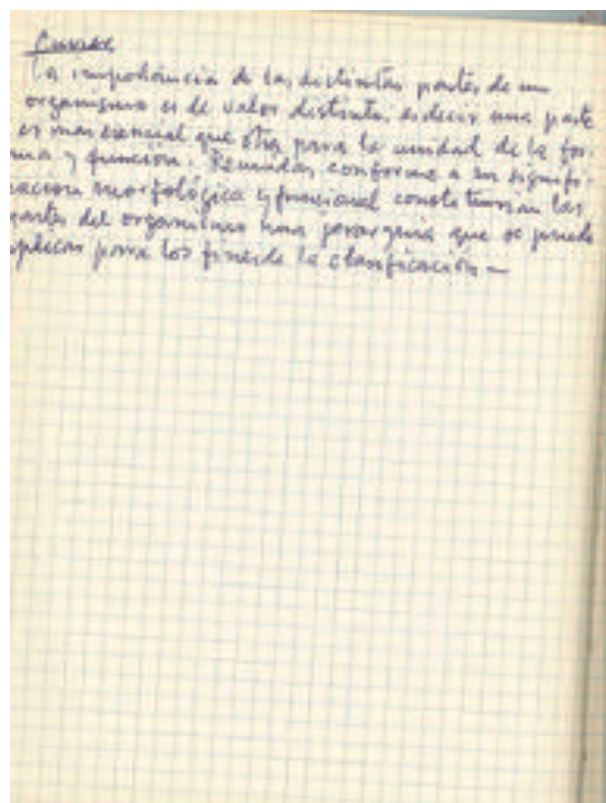 Cuvier
La importancia de las distintas partes de un
organismo es de valor distinto, es decir una parte
es mas esencial que otra para la unidad de la for-
ma y función. Reunidas conforme a su signifi-
cación morfológica y funcional constituyen las
partes del organismo una jerarquia que se puede
aplicar para los fines de la clasificación —